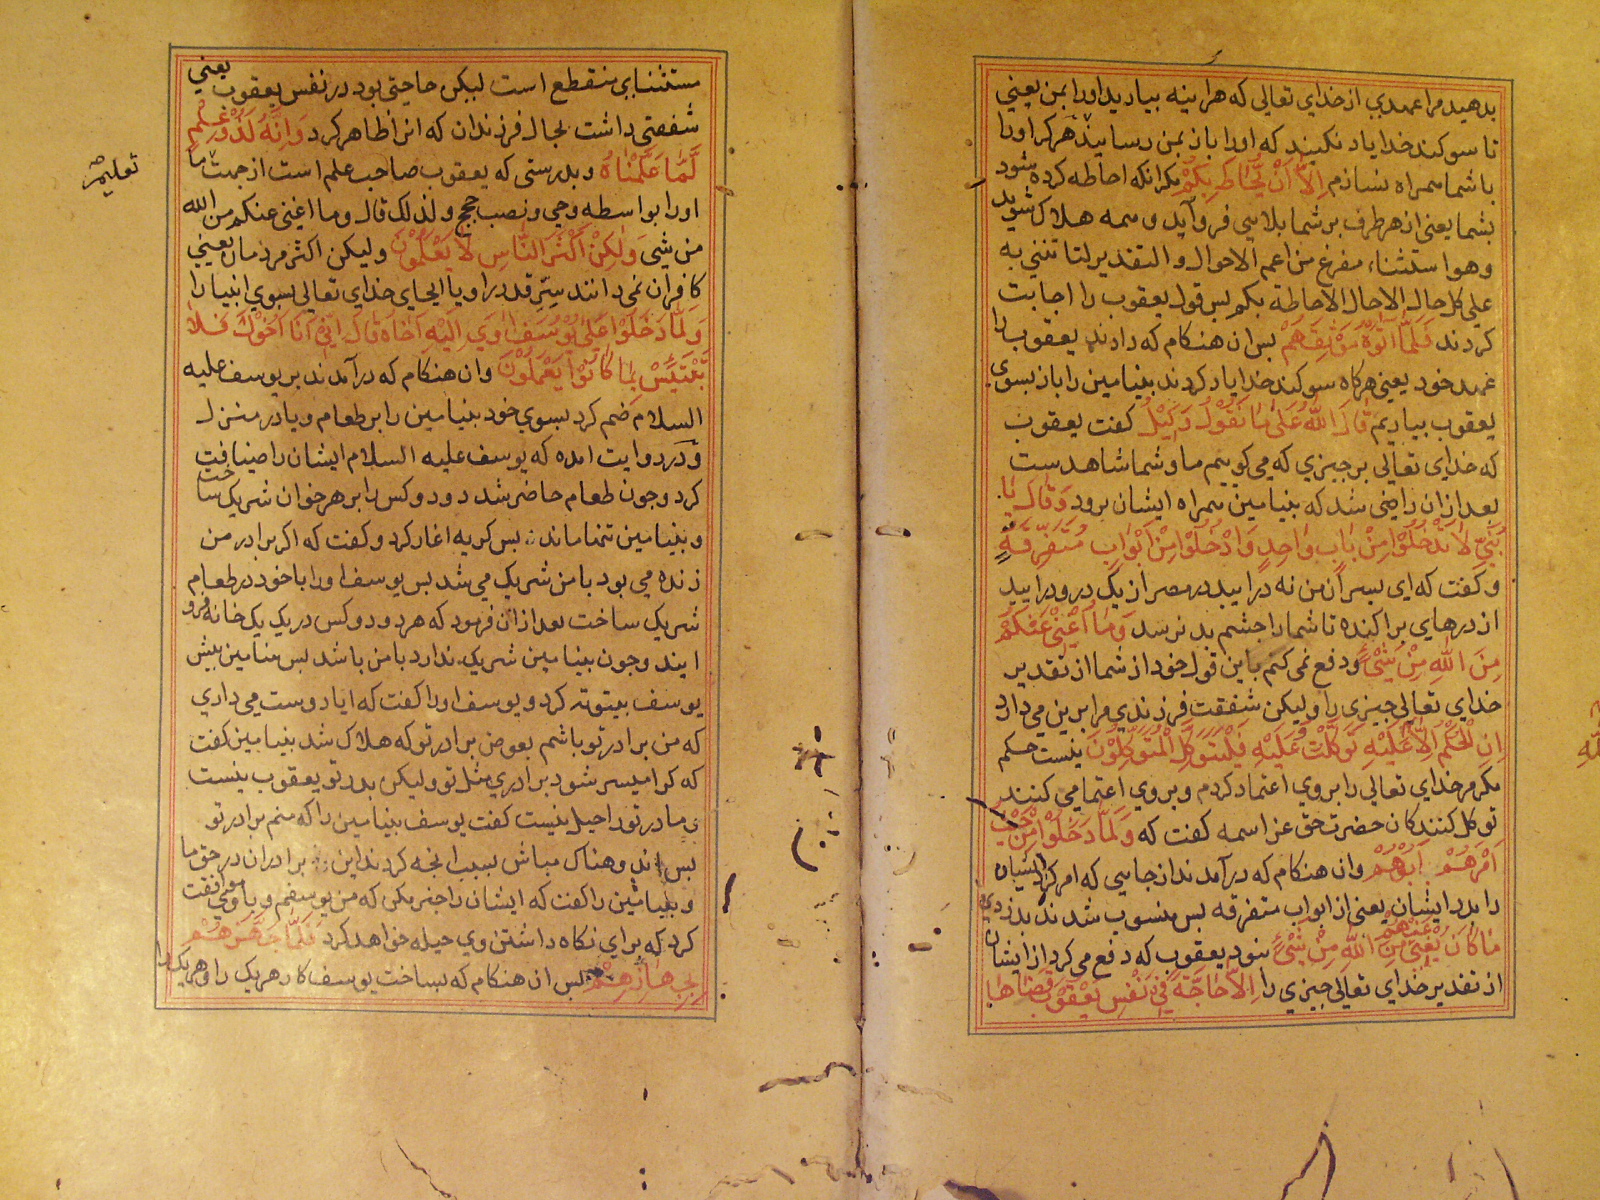 بدهید مرا عهدی از خدای تعالی که هراینه بیارید او را بمن یعنی
تا سوکند خدا یاد نکنید که او را باز بمن رسانید هرکز او را
با شما همراه نسازم اِلاَّ اَنْ یُحَاطَ بِکُمْ مکر انکه احاطه کرده شود
بشما یعنی از هر طرف بر شما بلایی فرو آید و همه هلاک شوید
وهو استثناء مفرغ من اعم الاحوال و التقدیر لتاتننی به
علی کل حال الا حال الاحاطة بکم بس قول یعقوب را اجابت
کردند فَلَمَّا آتَوْهُ مَوْثِقَهُمْ بس ان هنکام که دادند یعقوب را
عهد خود یعنی هرکاه سوکند خدا یاد کردند بنیامین را باز بسوی
یعقوب بیاریم قَالَ اللّٰهُ عَلٰی مَا نَقُوْلُ وَکِیْلٌ کفت یعقوب
که خدای تعالی بر جیزی که می کوییم ما و شما شاهدست
بعد از ان راضی شد که بنیامین همراه ایشان برود وَقَالَ یَا
بَنِیَّ لَا تَدْخُلُوْا مِنْ بَابٍ وَاحِدٍ وَادْخُلُوْا مِنْ اَبْوَابٍ مُتَفَرِّقَةٍ
و کفت که ای بسران من نه درایید در مصر از یک در و درایید
از درهایی براکنده تا شما را جشم بد نرسد وَمَا اُغْنِیْ عَنْکُمْ
مِنَ اللّٰهِ مِنْ شَیْءٍ و دفع نمی کنم باین قول خود از شما از تقدیر
خدای تعالی جیزی را و لیکن شفقت فرزندی مرا برین می دارد
اِنِ الْحُکْمُ اِلاَّ لِلّٰهِ عَلَیْهِ تَوَکَّلْتُ وَعَلَیْهِ فَلْیَتَوَکَّلِ الْمُتَوَکِّلُوْنَ نیست حکم
مکر مر خدای تعالی را بر وی اعتماد کردم و بر وی اعتماد می کنند
توکل کنندکان حضرت حق عز اسمه کفت که وَلَمَّا دَخَلُوْا مِنْ حَیْثُ
اَمَرَهُمْ اَبُوْهُمْ وان هنکام که درآمدند از جایی که امر کرد ایشان
را بدر ایشان یعنی از ابواب متفرقه بس منسوب شدند بدزدی
مَا کَانَ یُغْنِیْ عَنْهُمْ مِنَ اللّٰهِ مِنْ شَیْءٍ نبود یعقوب که دفع می کرد از ایشان
از تقدیر خدای تعالی جیزی را اِلاَّ حَاجَةً فِیْ نَفْسِ یَعْقُوْبَ قَضَاهَا
مستثنای منقطع است لیکن حاجتی بود در نفس یعقوب یعنی
شفقتی داشت بحال فرزندان که انرا ظاهر کرد وَاِنَّهُ لَذُوْ عِلْمٍ
لِمَّا عَلَّمْنَاهُ و بدرستی که یعقوب صاحب علم است از جهت ما
تعلیم
او را بواسطه وحی و نصب حجج و لذلک قال و ما اغنی عنکم من الله
من شیء وَلٰکِنَّ اَکْثَرَ النَّاسِ لَا یَعْلَمُوْنَ و لیکن اکثر مردمان یعنی
کافران نمی دانند سِرّ قدر را و یا ایحای خدای تعالی بسوی انبیا را
وَلَمَّا دَخَلُوْا عَلٰی یُوْسُفَ اٰوٰی اِلَیْهِ اَخَاهُ قَالَ اِنِّیْ اَنَا اَخُوْکَ فَلَا
تَبْتَئِسْ بِمَا کَانُوْا یَعْمَلُوْنَ وان هنکام که درآمدند بر یوسف علیه
السلام ضم کرد بسوی خود بنیامین را بر طعام و یا در منزل
و در روایت امده که یوسف علیه السلام ایشان را ضیافت
کرد و جون طعام حاضر شد دو دو کس را بر هر خوان شریک ساخت
و بنیامین تنها ماند بس کریه اغاز کرد و کفت که اکر برادر من
زنده می بود با من شریک می شد بس یوسف او را با خود در طعام
شریک ساخت بعد از ان فرمود که هر دو دو کس در یک یک خانه فرو
ایند و جون بنیامین شریک ندارد با من باشد بس بنیامین بیش
یوسف بیتوته کرد و یوسف او را کفت که ایا دوست می داری
که من برادر تو باشم بعوض برادر تو که هلاک شد بنیامین کفت
که کرا میسر شود برادری مثل تو و لیکن بدر تو یعقوب نیست
و مادر تو راحیل نیست کفت یوسف بنیامین را که منم برادر تو
بس اندوهناک مباش بسبب انجه کردند این برادران در حق ما
و بنیامین را کفت که ایشان را خبر مکن که من یوسفم و با وی موافقت
کرد که برای نکاه داشتن وی حیله خواهد کرد فَلَمَّا جَهَّزَهُمْ
بِجَهَازِهِمْ بس ان هنکام که بساخت یوسف کار هر یک را و هر یک را